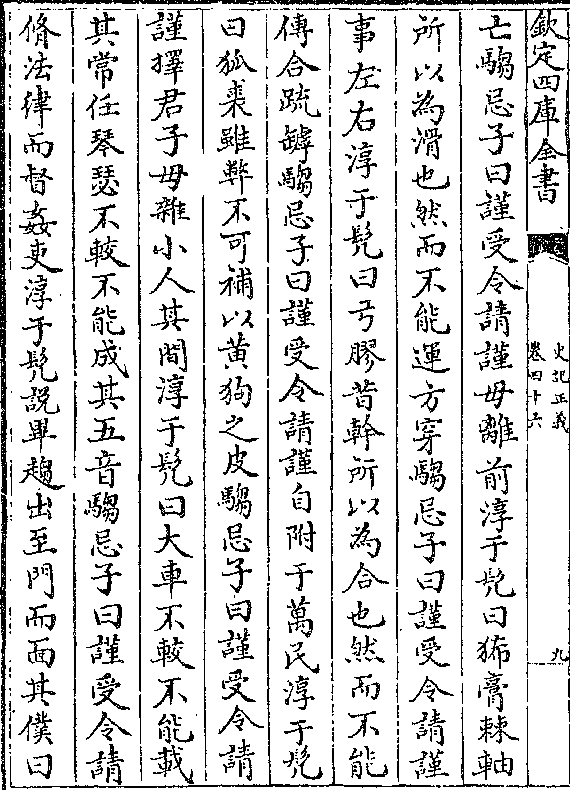 欽定四庫全書
史記正義
卷四十六
九
亡騶忌子曰謹受令請謹毋離前淳于髠曰狶膏棘軸
所以為滑也然而不能運方穿騶忌子曰謹受令請謹
事左右淳于髠曰弓膠昔幹所以為合也然而不能
傅合疏罅騶忌子曰謹受令請謹自附于萬民淳于髠
曰狐裘雖弊不可補以黄狗之皮騶忌子曰謹受令請
謹擇君子毋雜小人其間淳于髠曰大車不較不能載
其常任琴瑟不較不能成其五音騶忌子曰謹受令請
脩法律而督姦吏淳于髠說畢趨出至門而面其僕曰